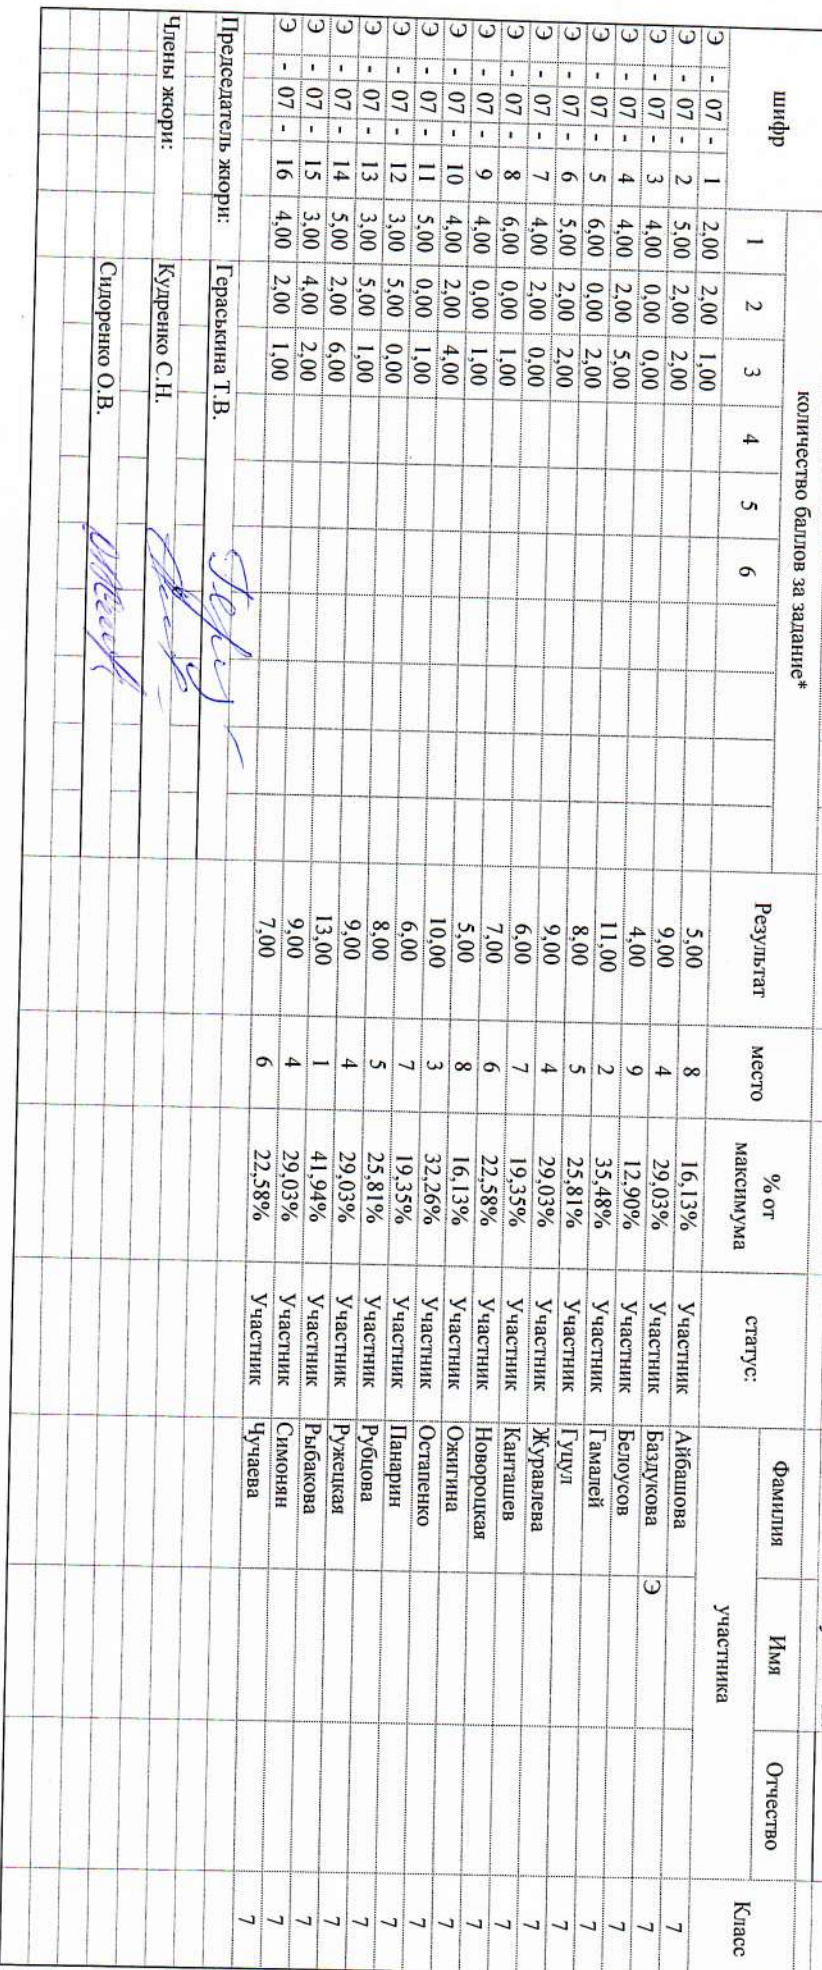 шифр количество баллов за задание* Результат место % от максимума статус: участника Класс
1 2 3 4 5 6 Фамилия Имя Отчество
Э - 07 - 1 2,00 2,00 1,00 5,00 8 16,13% Участник Айбашова 7
Э - 07 - 2 5,00 2,00 2,00 9,00 4 29,03% Участник Баздукова Э 7
Э - 07 - 3 4,00 0,00 0,00 4,00 9 12,90% Участник Белоусов 7
Э - 07 - 4 4,00 2,00 5,00 11,00 2 35,48% Участник Гамалей 7
Э - 07 - 5 6,00 0,00 2,00 8,00 5 25,81% Участник Гуцул 7
Э - 07 - 6 5,00 2,00 2,00 9,00 4 29,03% Участник Журавлева 7
Э - 07 - 7 4,00 2,00 0,00 6,00 7 19,35% Участник Канташев 7
Э - 07 - 8 6,00 0,00 1,00 7,00 6 22,58% Участник Новороцкая 7
Э - 07 - 9 4,00 0,00 1,00 5,00 8 16,13% Участник Ожигина 7
Э - 07 - 10 4,00 2,00 4,00 10,00 3 32,26% Участник Остапенко 7
Э - 07 - 11 5,00 0,00 1,00 6,00 7 19,35% Участник Панарин 7
Э - 07 - 12 3,00 5,00 0,00 8,00 5 25,81% Участник Рубцова 7
Э - 07 - 13 3,00 5,00 1,00 9,00 4 29,03% Участник Ружецкая 7
Э - 07 - 14 5,00 2,00 6,00 13,00 1 41,94% Участник Рыбакова 7
Э - 07 - 15 3,00 4,00 2,00 9,00 4 29,03% Участник Симонян 7
Э - 07 - 16 4,00 2,00 1,00 7,00 6 22,58% Участник Чучаева 7
Председатель жюри: Гераськина Т.В.
Члены жюри: Кудренко С.Н.
Сидоренко О.В.